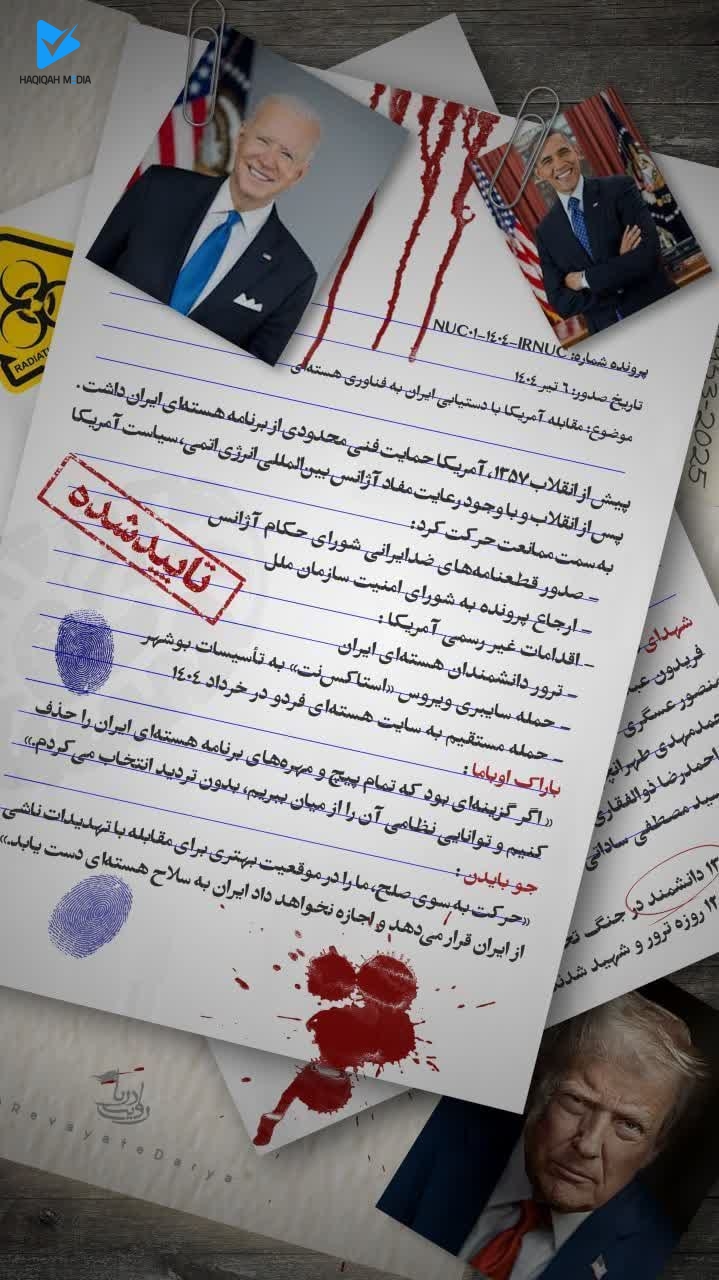 HAQIQAH MEDIA
پرونده شماره: NUC۰۱-۱۴۰۴-IRNUC
تاریخ صدور: ۶ تیر ۱۴۰۴
موضوع: مقابله آمریکا با دستیابی ایران به فناوری هسته‌ای
پیش از انقلاب ۱۳۵۷، آمریکا حمایت فنی محدودی از برنامه هسته‌ای ایران داشت.
پس از انقلاب و با وجود رعایت مفاد آژانس بین‌المللی انرژی اتمی، سیاست آمریکا
به سمت ممانعت حرکت کرد:
- صدور قطعنامه‌های ضدایرانی شورای حکام آژانس
- ارجاع پرونده به شورای امنیت سازمان ملل
- اقدامات غیر رسمی آمریکا:
- ترور دانشمندان هسته‌ای ایران
- حمله سایبری ویروس «استاکس‌نت» به تأسیسات بوشهر
- حمله مستقیم به سایت هسته‌ای فردو در خرداد ۱۴۰۴
باراک اوباما:
«اگر گزینه‌ای بود که تمام پیچ و مهره‌های برنامه هسته‌ای ایران را حذف
کنیم و توانایی نظامی آن را از میان ببریم، بدون تردید انتخاب می‌کردم.»
جو بایدن:
«حرکت به سوی صلح، ما را در موقعیت بهتری برای مقابله با تهدیدات ناشی
از ایران قرار می‌دهد و اجازه نخواهد داد ایران به سلاح هسته‌ای دست یابد.»
تاییدشده
RADIAT
53-2025
شهدای
فریدون عب
منصور عسگری
مدمهدی طهرانچ
احمدرضا ذوالفقاری
سید مصطفی ساداتی
۱۳ دانشمند در جنگ تح
۱۲ روزه ترور و شهید شدند
روایت دریا
RevayateDarya